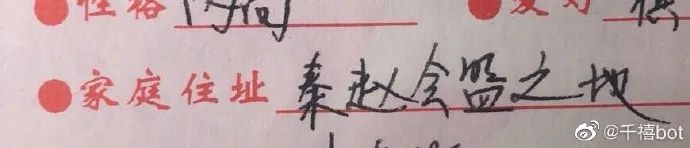 ●性格 内向 ●爱好
●家庭住址 秦赵会盟之地
@千禧bot